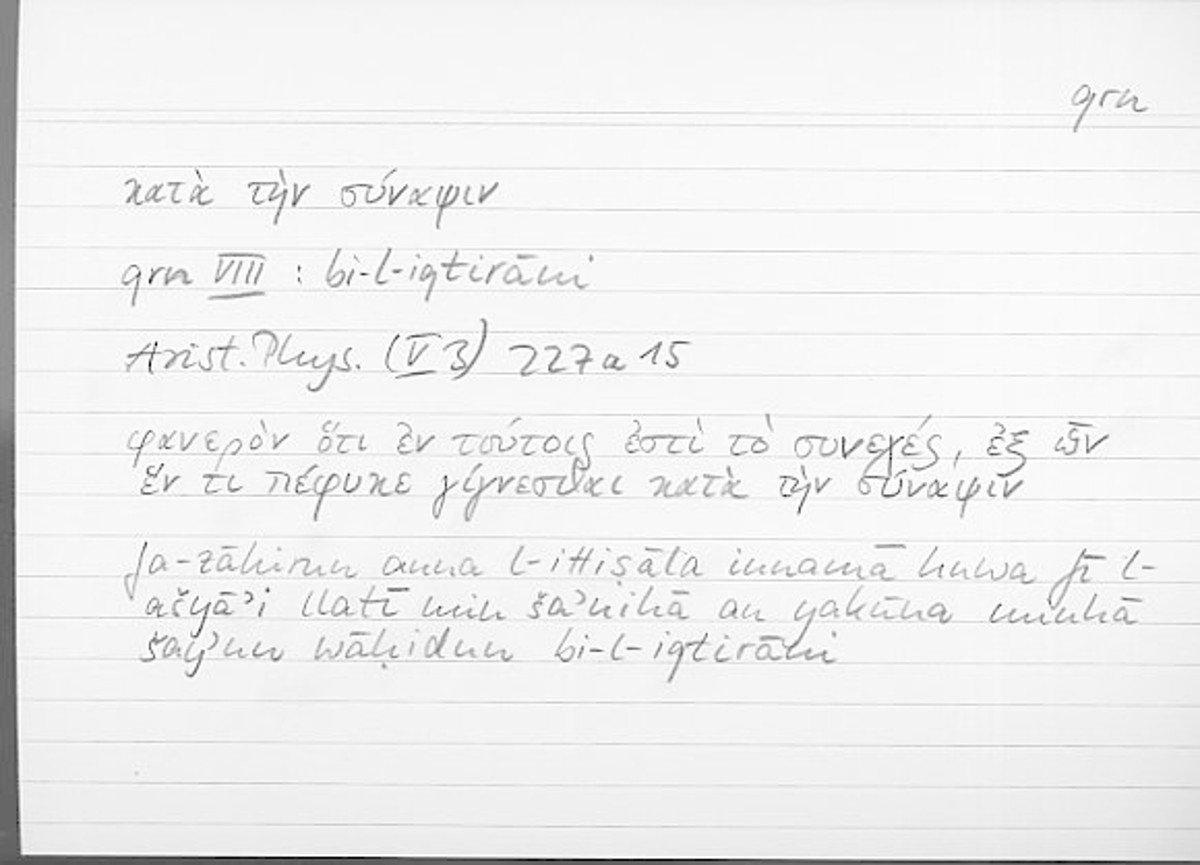 qrn
κατὰ τὴν σύναψιν
qrn VIII : bi-l-iqtirāni
Arist. Phys. (V 3) 227 a 15
φανερὸν ὅτι ἐν τούτοις ἐστὶ τὸ συνεχές, ἐξ ὧν
ἕν τι πέφυκε γίγνεσθαι κατὰ τὴν σύναψιν
fa-ẓāhirun anna l-ittiṣāla innamā huwa fī l-
ašyāʾi llatī min šaʾnihā an yakūna minhā
šayʾun wāḥidun bi-l-iqtirāni